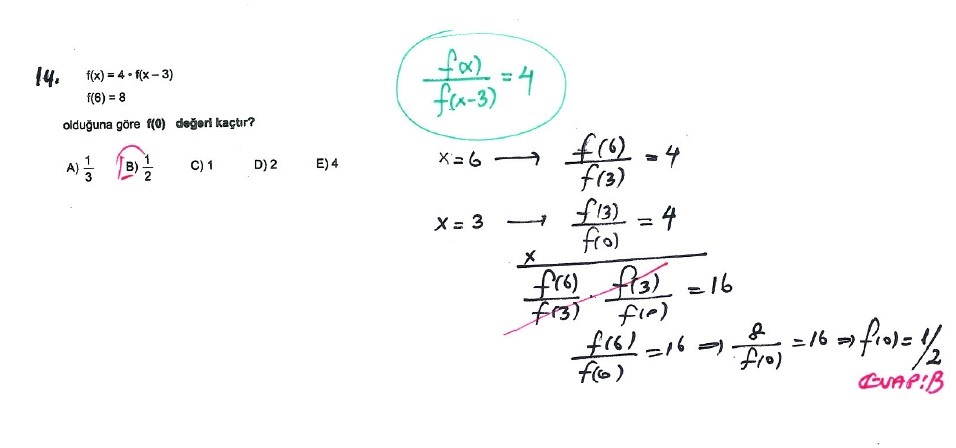 14. f(x) = 4 • f(x – 3)
f(6) = 8
olduğuna göre f(0) değeri kaçtır?
A) 1/3 B) 1/2 C) 1 D) 2 E) 4
f(x)/f(x-3) = 4
x=6 → f(6)/f(3) = 4
x=3 → f(3)/f(0) = 4
x
f(6)/f(3) . f(3)/f(0) = 16
f(6)/f(0) = 16 ⇒ 8/f(0) = 16 ⇒ f(0) = 1/2
CEVAP: B